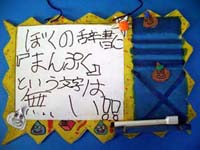 ぼくの辞書に
『まんぷく』
という文字は
無い!!